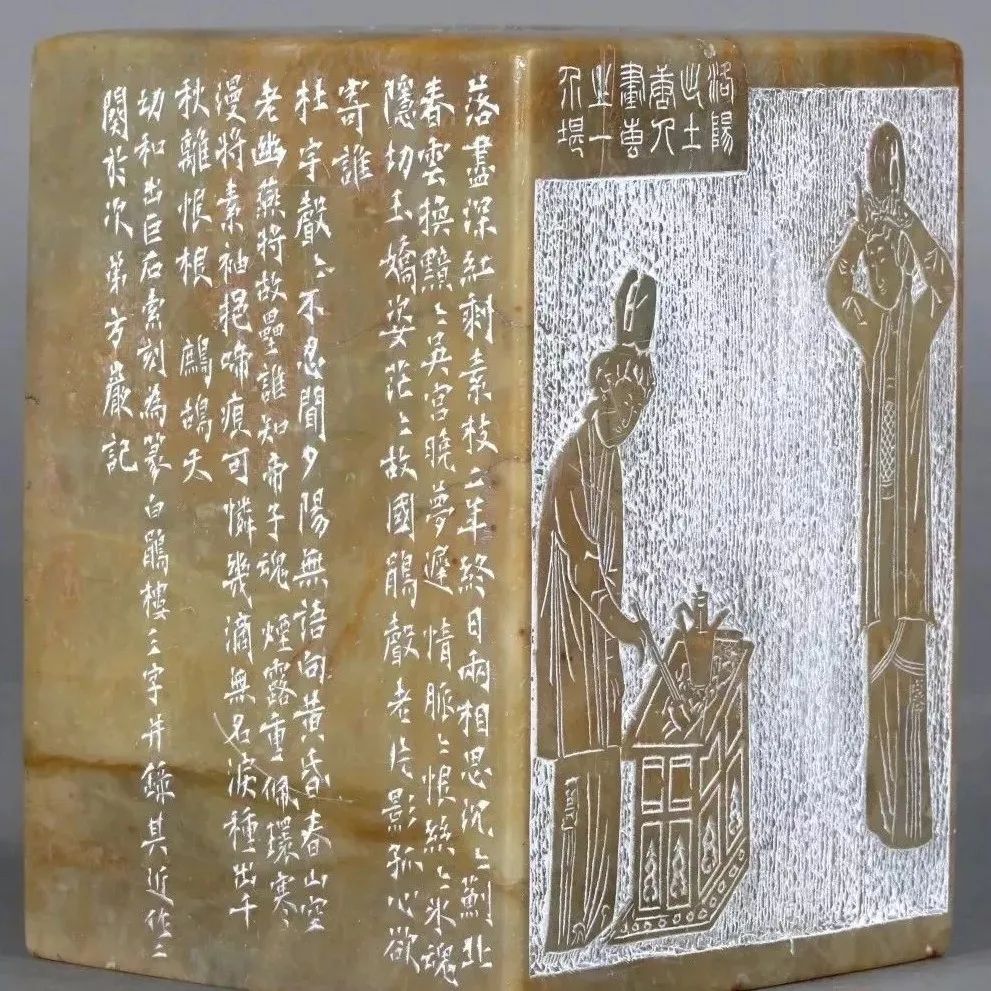 洛陽
出土
唐人
畫專
之一
介堪
落盡深紅剩素枝二年終日兩相思沉〻薊北
春雲換黯〻吳宮曉夢遲情脈〻恨絲〻氷魂
隱切玉嬌姿茫〻故國鵑聲老片影孤心欲
寄誰
杜宇聲〻不忍聞夕陽無語向黃昏春山空
老幽燕將故壘誰知帝子魂煙露重佩環寒〻
漫將素袖挹啼痕可憐幾滴無名淚種出千
秋離恨根 鷓鴣天
幼和出巨石索刻為篆白鵑樓三字并錄其近作二
闋於次第方嚴記